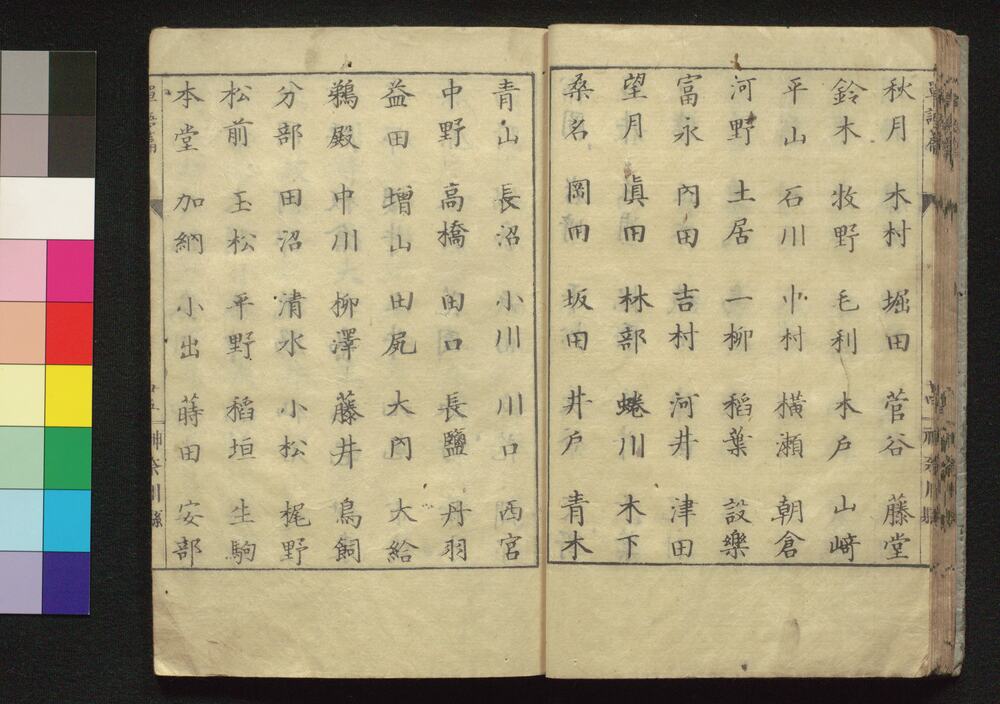 秋月 木村 堀田 菅谷 藤堂
鈴木 牧野 毛利 木戸 山﨑
平山 石川 中村 橫瀨 朝倉
河野 土居 一柳 稻葉 設樂
富永 內田 吉村 河井 津田
望月 眞田 林部 蜷川 木下
桑名 岡田 坂田 井戸 青木
青山 長沼 小川 川口 西宮
中野 高橋 田口 長鹽 丹羽
益田 增山 田尻 大內 大給
鵜殿 中川 柳澤 藤井 鳥飼
分部 田沼 清水 小松 梶野
松前 玉松 平野 稻垣 生駒
本堂 加納 小出 蒔田 安部
廿五 神奈川縣